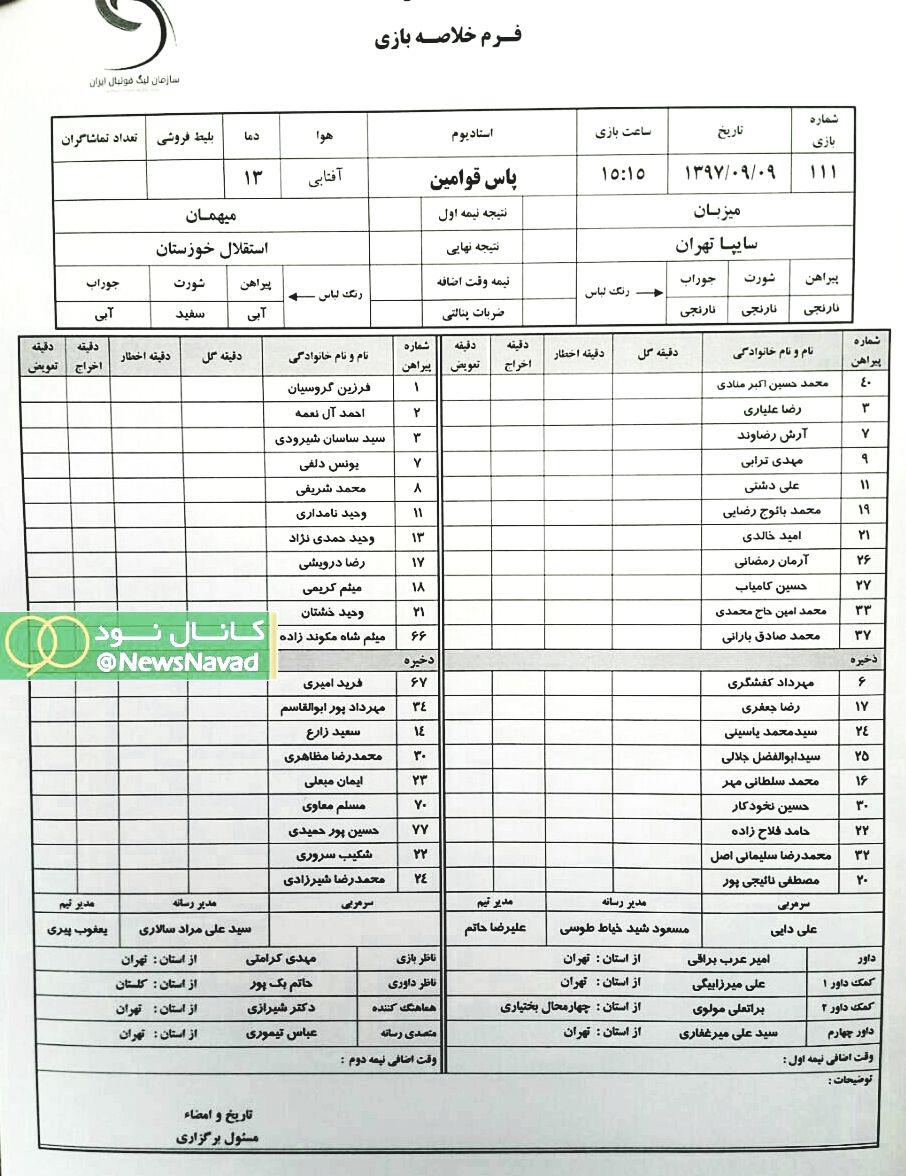 فرم خلاصه بازی
سازمان لیگ فوتبال ایران
شماره بازی تاریخ ساعت بازی استادیوم هوا دما بلیط فروشی تعداد تماشاگران
۱۱۱ ۱۳۹۷/۰۹/۰۹ ۱۵:۱۵ پاس قوامین آفتابی ۱۳
میزبان نتیجه نیمه اول میهمان
سایپا تهران نتیجه نهایی استقلال خوزستان
پیراهن شورت جوراب رنگ لباس نیمه وقت اضافه رنگ لباس پیراهن شورت جوراب
نارنجی نارنجی نارنجی ضربات پنالتی آبی سفید آبی
شماره پیراهن نام و نام خانوادگی دقیقه گل دقیقه اخطار دقیقه اخراج دقیقه تعویض شماره پیراهن نام و نام خانوادگی دقیقه گل دقیقه اخطار دقیقه اخراج دقیقه تعویض
۴۰ محمد حسین اکبر منادی ۱ فرزین گروسیان
۳ رضا علیاری ۲ احمد آل نعمه
۷ آرش رضاوند ۳ سید ساسان شیرودی
۹ مهدی ترابی ۷ یونس دلفی
۱۱ علی دشتی ۸ محمد شریفی
۱۹ محمد بائوج رضایی ۱۱ وحید نامداری
۲۱ امید خالدی ۱۳ وحید حمدی نژاد
۲۶ آرمان رمضانی ۱۷ رضا درویشی
۲۷ حسین کامیاب ۱۸ میثم کریمی
۳۳ محمد امین حاج محمدی ۲۱ وحید خشتان
۳۷ محمد صادق بارانی ۶۶ میثم شاه مکوند زاده
ذخیره ذخیره
۶ مهرداد کفشگری ۶۷ فرید امیری
۱۷ رضا جعفری ۳۴ مهرداد پور ابوالقاسم
۲۴ سیدمحمد یاسینی ۱۴ سعید زارع
۲۵ سیدابوالفضل جلالی ۳۰ محمدرضا مظاهری
۱۶ محمد سلطانی مهر ۲۳ ایمان مبعلی
۳۰ حسین نخودکار ۷۰ مسلم معاوی
۲۲ حامد فلاح زاده ۷۷ حسین پور حمیدی
۳۲ محمدرضا سلیمانی اصل ۲۲ شکیب سروری
۲۰ مصطفی نائیجی پور ۲۴ محمدرضا شیرزادی
سرمربی مدیر رسانه مدیر تیم سرمربی مدیر رسانه مدیر تیم
علی دایی مسعود شید خیاط طوسی علیرضا حاتم سید علی مراد سالاری یعقوب پیری
داور امیر عرب براقی از استان : تهران ناظر بازی مهدی کرامتی از استان : تهران
کمک داور ۱ علی میرزابیگی از استان : تهران ناظر داوری حاتم بک پور از استان : گلستان
کمک داور ۲ براتعلی مولوی از استان : چهارمحال بختیاری هماهنگ کننده دکتر شیرازی از استان : تهران
داور چهارم سید علی میرغفاری از استان : تهران متصدی رسانه عباس تیموری از استان : تهران
وقت اضافی نیمه اول : وقت اضافی نیمه دوم :
توضیحات :
تاریخ و امضاء
مسئول برگزاری
کانال نود
@NewsNavad